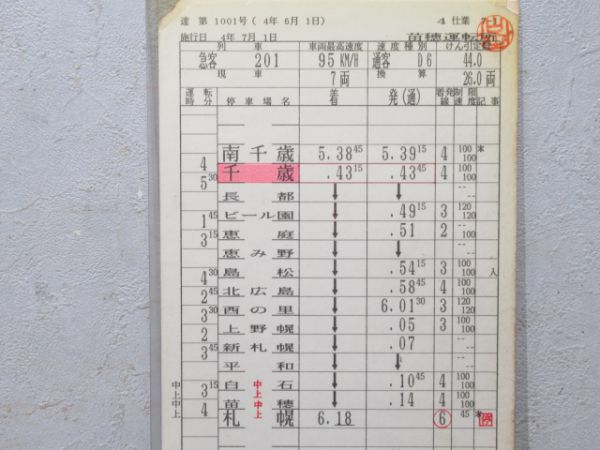 達 第 1001号( 4年 6月 1日) 4 仕業
施行日 4年 7月 1日 苗穂運転所
列 車 車両最高速度 速度種別 けん引定数
急客 201 95 KM/H 通客 D6 44.0
現 車 7両 換 算 26.0 両
運転時分 停車場名 着 発(通) 着発線 制限速度 記事
南千歳 5.38 45 5.39 15 4 100 100
4
千歳 .43 15 .43 45 4 100 100
5 30
長都 ↓ ↓ -- --
ビール園 ↓ .49 15 3 120 120
1 45
恵庭 ↓ .51 2 100
3 15
恵み野 ↓ ↓ -- --
島松 ↓ .54 15 3 100 100 入
4 30
北広島 ↓ .58 45 4 100 100
2 45
西の里 ↓ 6.01 30 3 100 100
3 30
上野幌 ↓ .05 3 100 100
2
新札幌 ↓ .07 -- --
3 45
平和 ↓ ↓ -- --
白石 中上 ↓ .10 45 4 100 100
中上 3 15
苗穂 中上 ↓ .14 4 100 100
中上 4
札幌 6.18 6 45 停